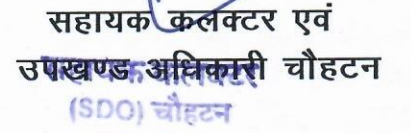 सहायक कलक्टर एवं
उपखण्ड अधिकारी चौहटन
(SDO) चौहटन